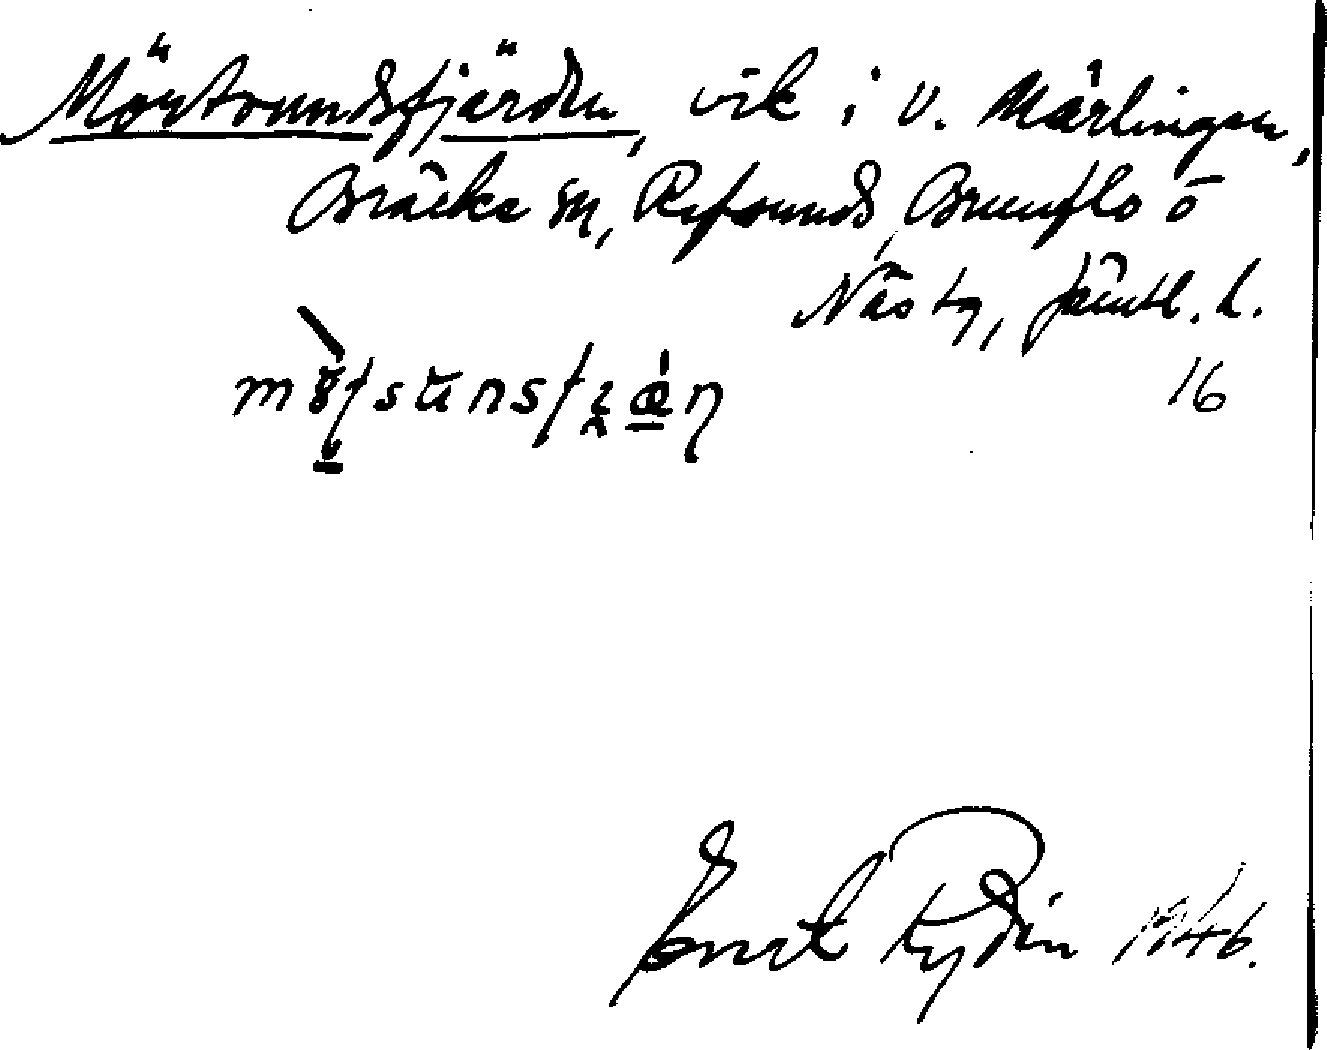 Mörtsundsfjärden, vik i V. Mårlingen,
Bräcke sn, Refsunds, Brunflo o
Näs tg, Jämtl. l.
16
Ernst Rydin 1946.